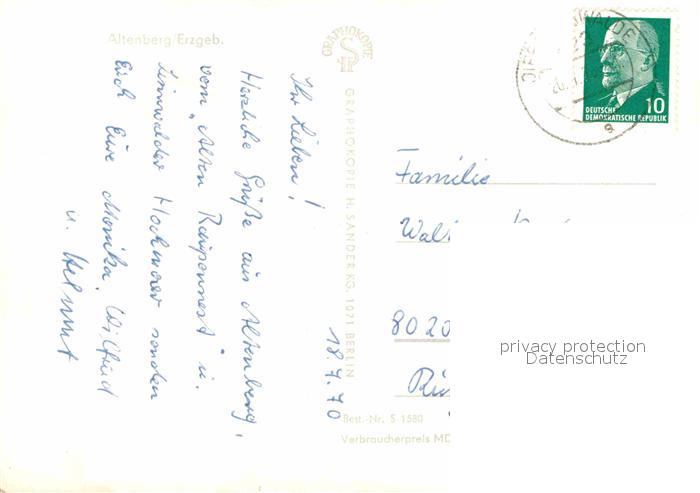 Altenberg/Erzgeb.
18.7.70
Ihr Lieben!
Herzliche Grüße aus Altenberg,
vom "Alten Raupennest" u.
Zinnwalder Hochmoor senden
Euch Eure Monika, Wilfried
u. Helmut
GRAPHOKOPIE
GRAPHOKOPIE H. SANDER KG. 1071 BERLIN
Best.-Nr. S 1580
Verbraucherpreis MD
DEUTSCHE
DEMOKRATISCHE REPUBLIK
10
a
Familie
8020
privacy protection
Datenschutz